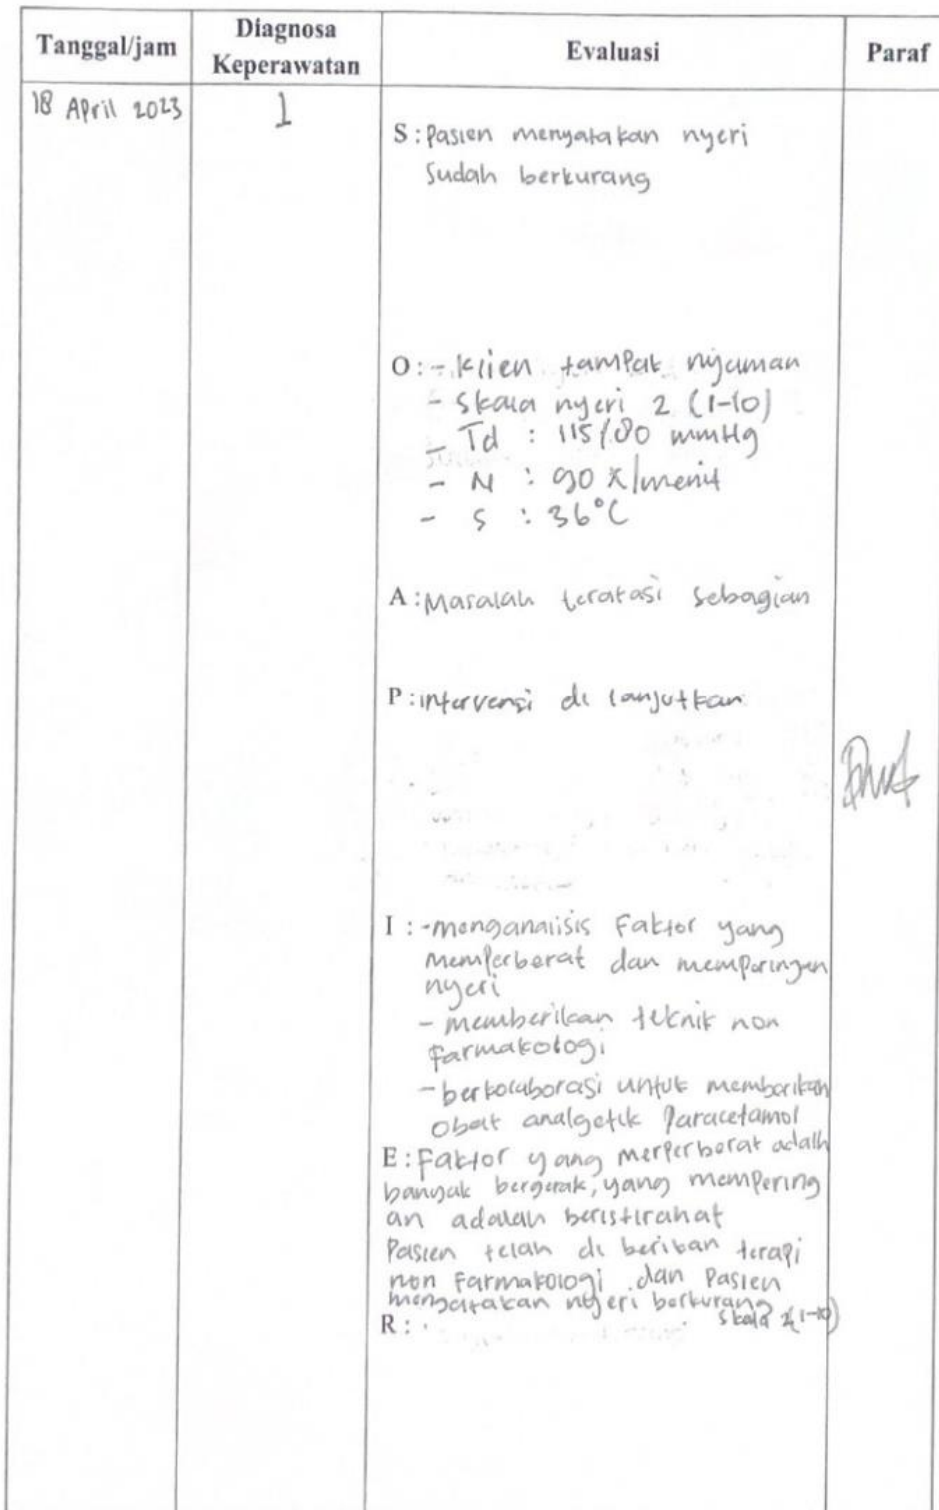 Tanggal/jam
Diagnosa
Keperawatan
Evaluasi
Paraf
18 April 2023
1
S : Pasien menyatakan nyeri
Sudah berkurang
O : - Klien tampak nyaman
- Skala nyeri 2 (1-10)
- Td : 115/80 mmHg
- N : 90 x/menit
- S : 36°C
A : Masalah teratasi sebagian
P : intervensi di lanjutkan
I : - menganalisis Faktor yang
memperberat dan memperingan
nyeri
- memberikan teknik non
farmakologi
- berkolaborasi untuk memberikan
Obat analgetik Paracetamol
E : Faktor yang merperberat adalh
banyak bergerak, yang mempering
an adalah beristirahat
Pasien telah di berikan terapi
non Farmakologi dan Pasien
mengatakan nyeri berkurang
skala 2(1-10)
R :